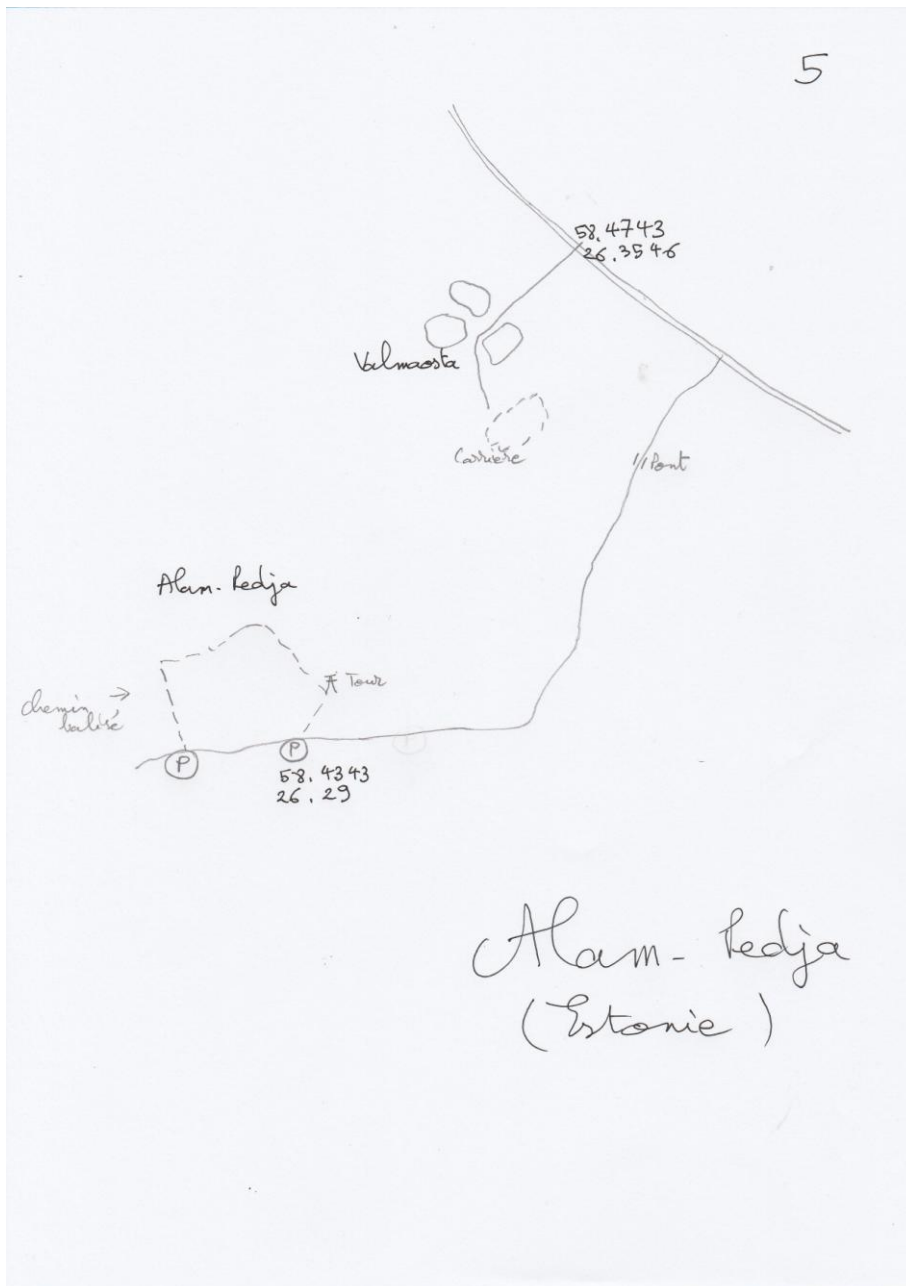 5
58.4743
26.3546
Valmaosta
Carrière
Pont
Alam-Pedja
Tour
chemin
balisé
P
P
58.4343
26.29
Alam-Pedja
(Estonie)